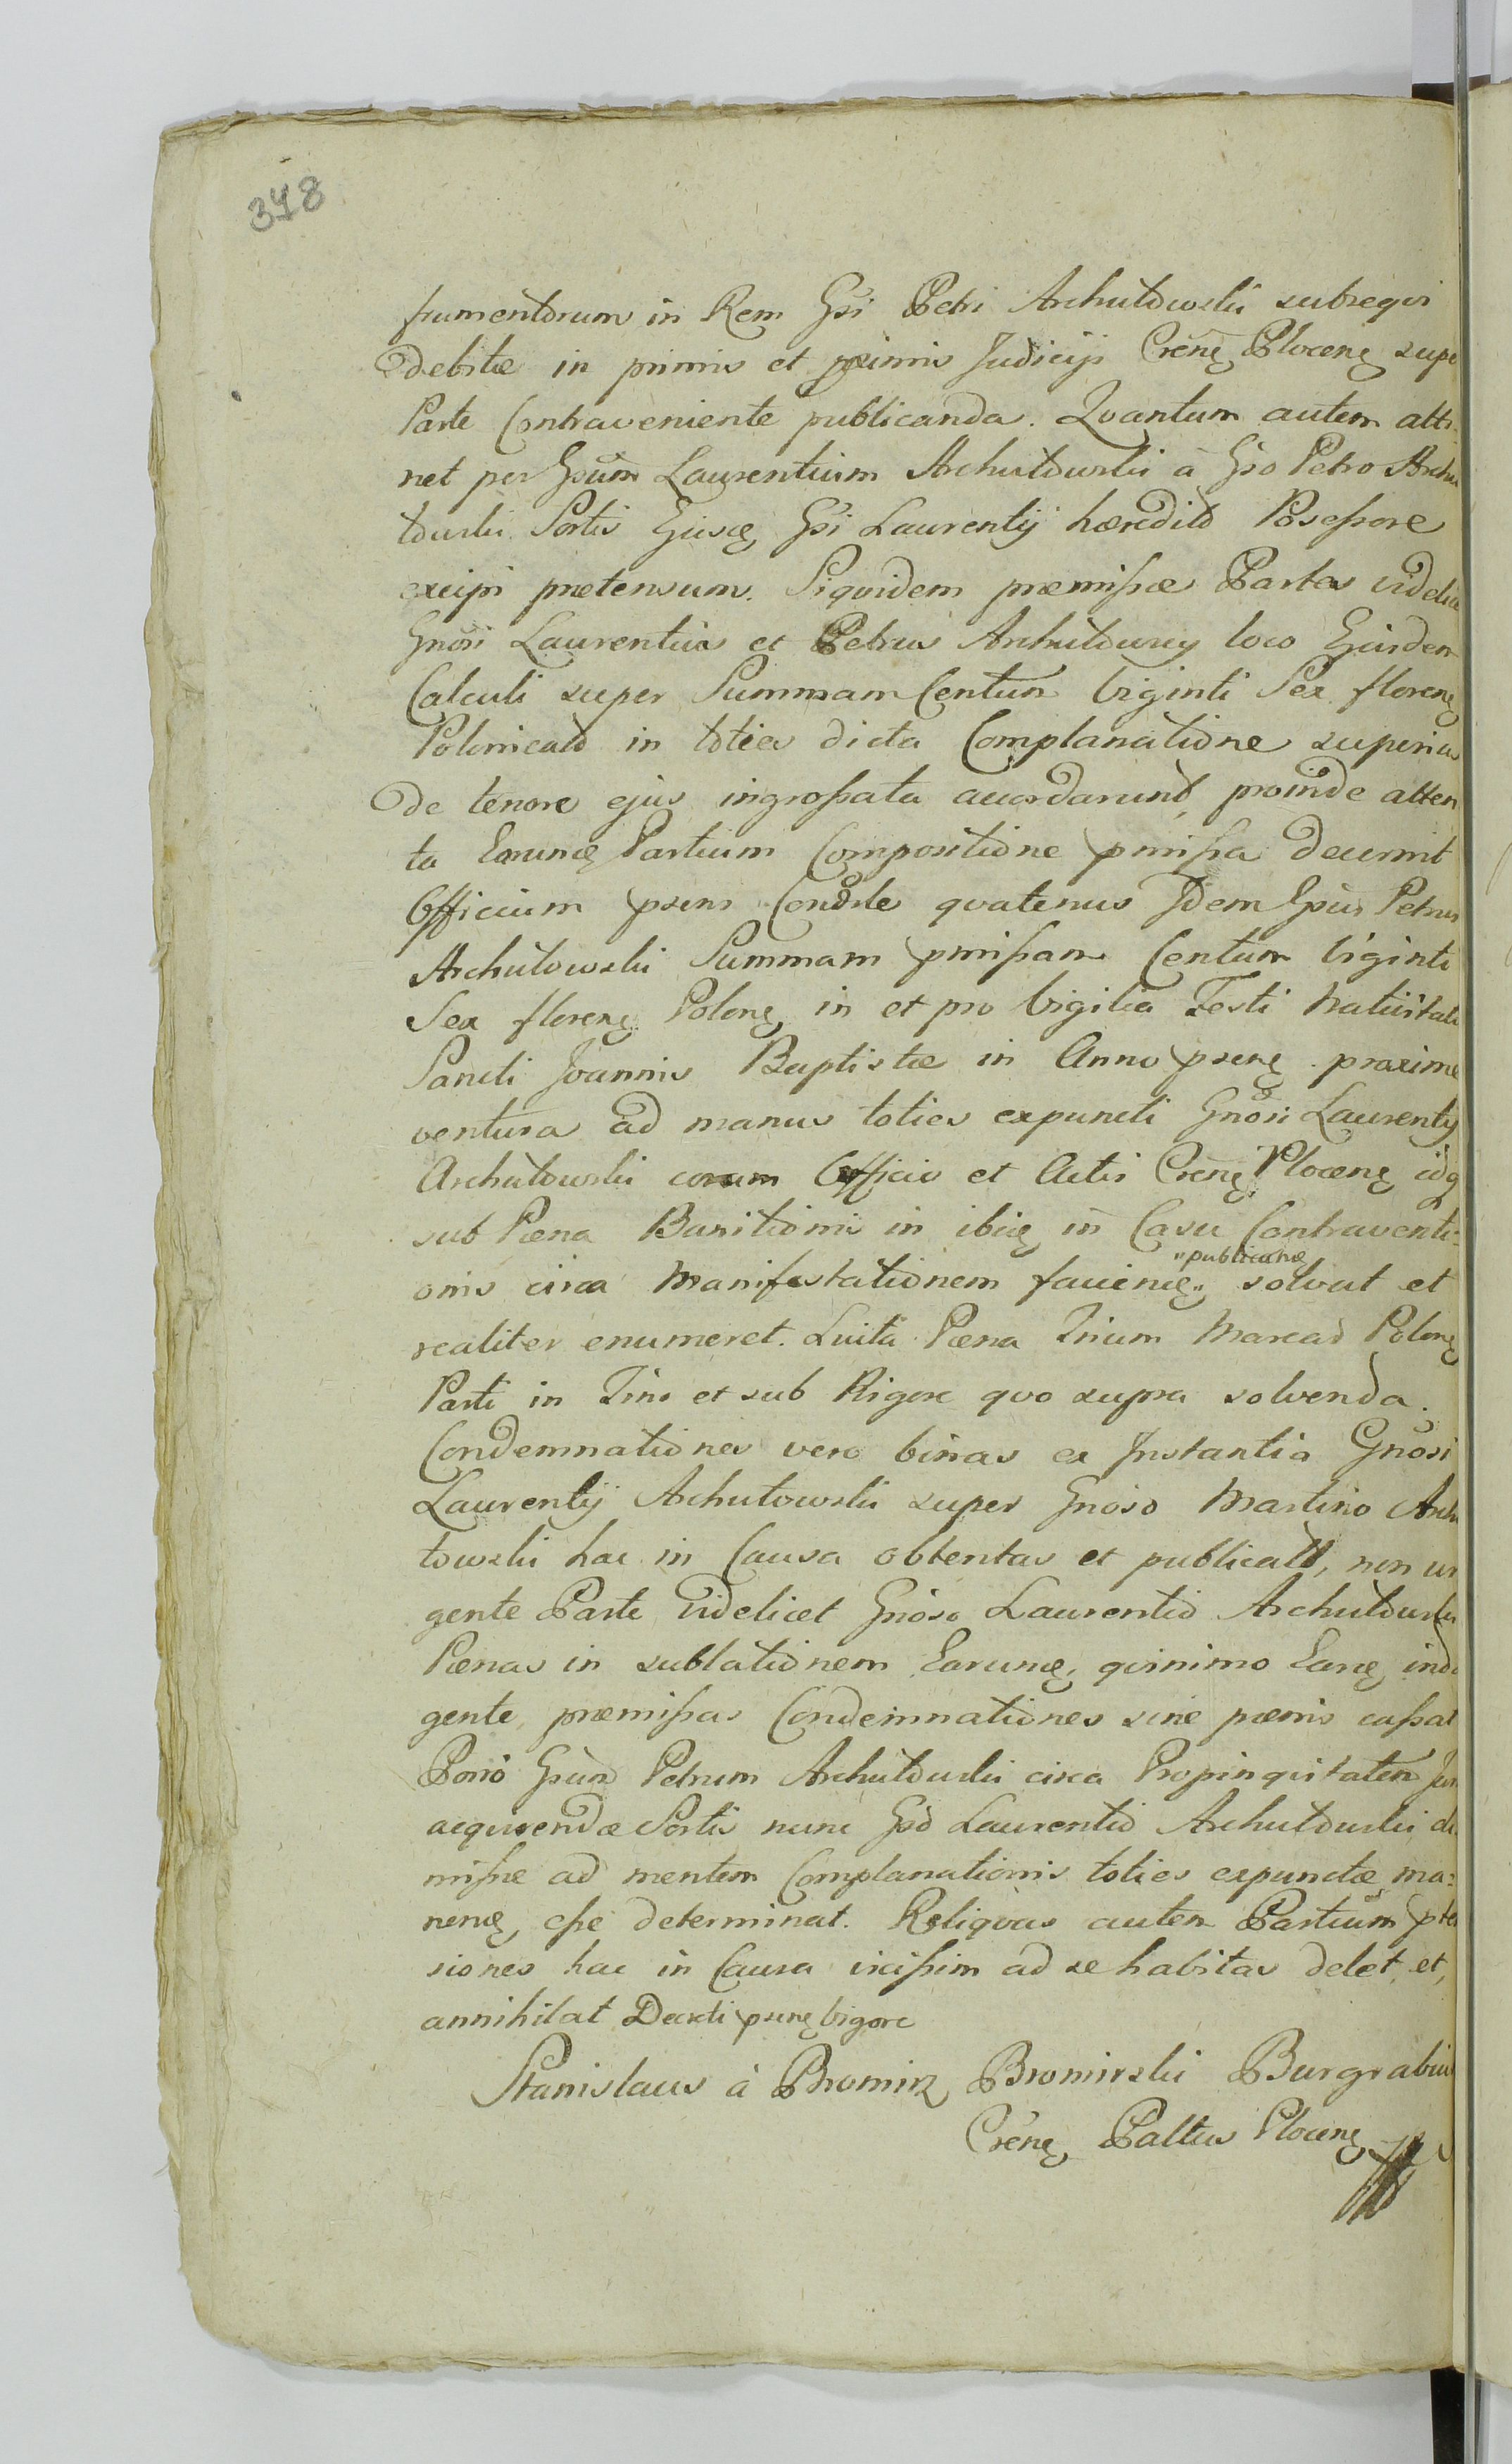 378
frumentorum in Rem Gsi Petri Archutowski subsequi
debitæ in primis et pximis Judicijs Crēnę Plocenę supe
Parte Contraveniente publicanda. Qvantum autem atti-
net per Gsum Laurentium Archutowski à Gso Petro Archu
towski Sortis Ejuscę Gsi Laurentij hæredito Possessore
excipi prætensum. Siqvidem præmissæ Partes videlice
Gnosi Laurentius et Petrus Archutowscy loco Ejusdem
Calculi super Summam Centum Viginti Sex florenę
Polonicato in toties dicta Complanatione superius
de tenore ejus ingrossata accordarunt, proinde atten
ta Earumcę Partium Compositione pmissa decernit
Officium psens Condśle qvatenus Idem Gsus Petrus
Archutowski Summam pmissam Centum Viginti
Sex florenę Polonę in et pro Vigilia Festi Nativitati
Sancti Joannis Baptistæ in Anno psenę proxime
ventura ad manus toties expuncti Gnosi Laurentij
Archutowski coram Officio et Actis Crēnę Plocenę idq
sub Pæna Banitionis in ibię in Casu Contraventi-
onis circa Manifestationem faciencę „publicancę„ solvat et
realiter enumeret. Luita Pæna Trium Marcas Polonę
Parti in Fino et sub Rigore quo supra solvenda.
Condemnationes vero binas ex Instantia Gnosi
Laurentij Archutowski super Gnoso Martino Archu
towski hac in Causa obtentas et publicats, non ur
gente Parte videlicet Gnoso Laurentio Archutowski
Pænas in sublationem Earumcę, qvinimo Earcę indu
gente, præmissas Condemnationes sine pænis cassat
Porro Gsum Petrum Archutowski circa Propinqvitatem Jur
acqvirendæ Sortis nunc Gso Laurentio Archutowski di
missæ ad mentem Complanationis toties expunctæ ma-
nencę, esse determinat. Reliqvas autem Partium pten
siones hac in Causa vicissim ad se habitas delet et
annihilat Decreti psenę vigore
Stanislaus à Bromirz Bromirski Burgrabius
Crēnę Paltus Plocenę